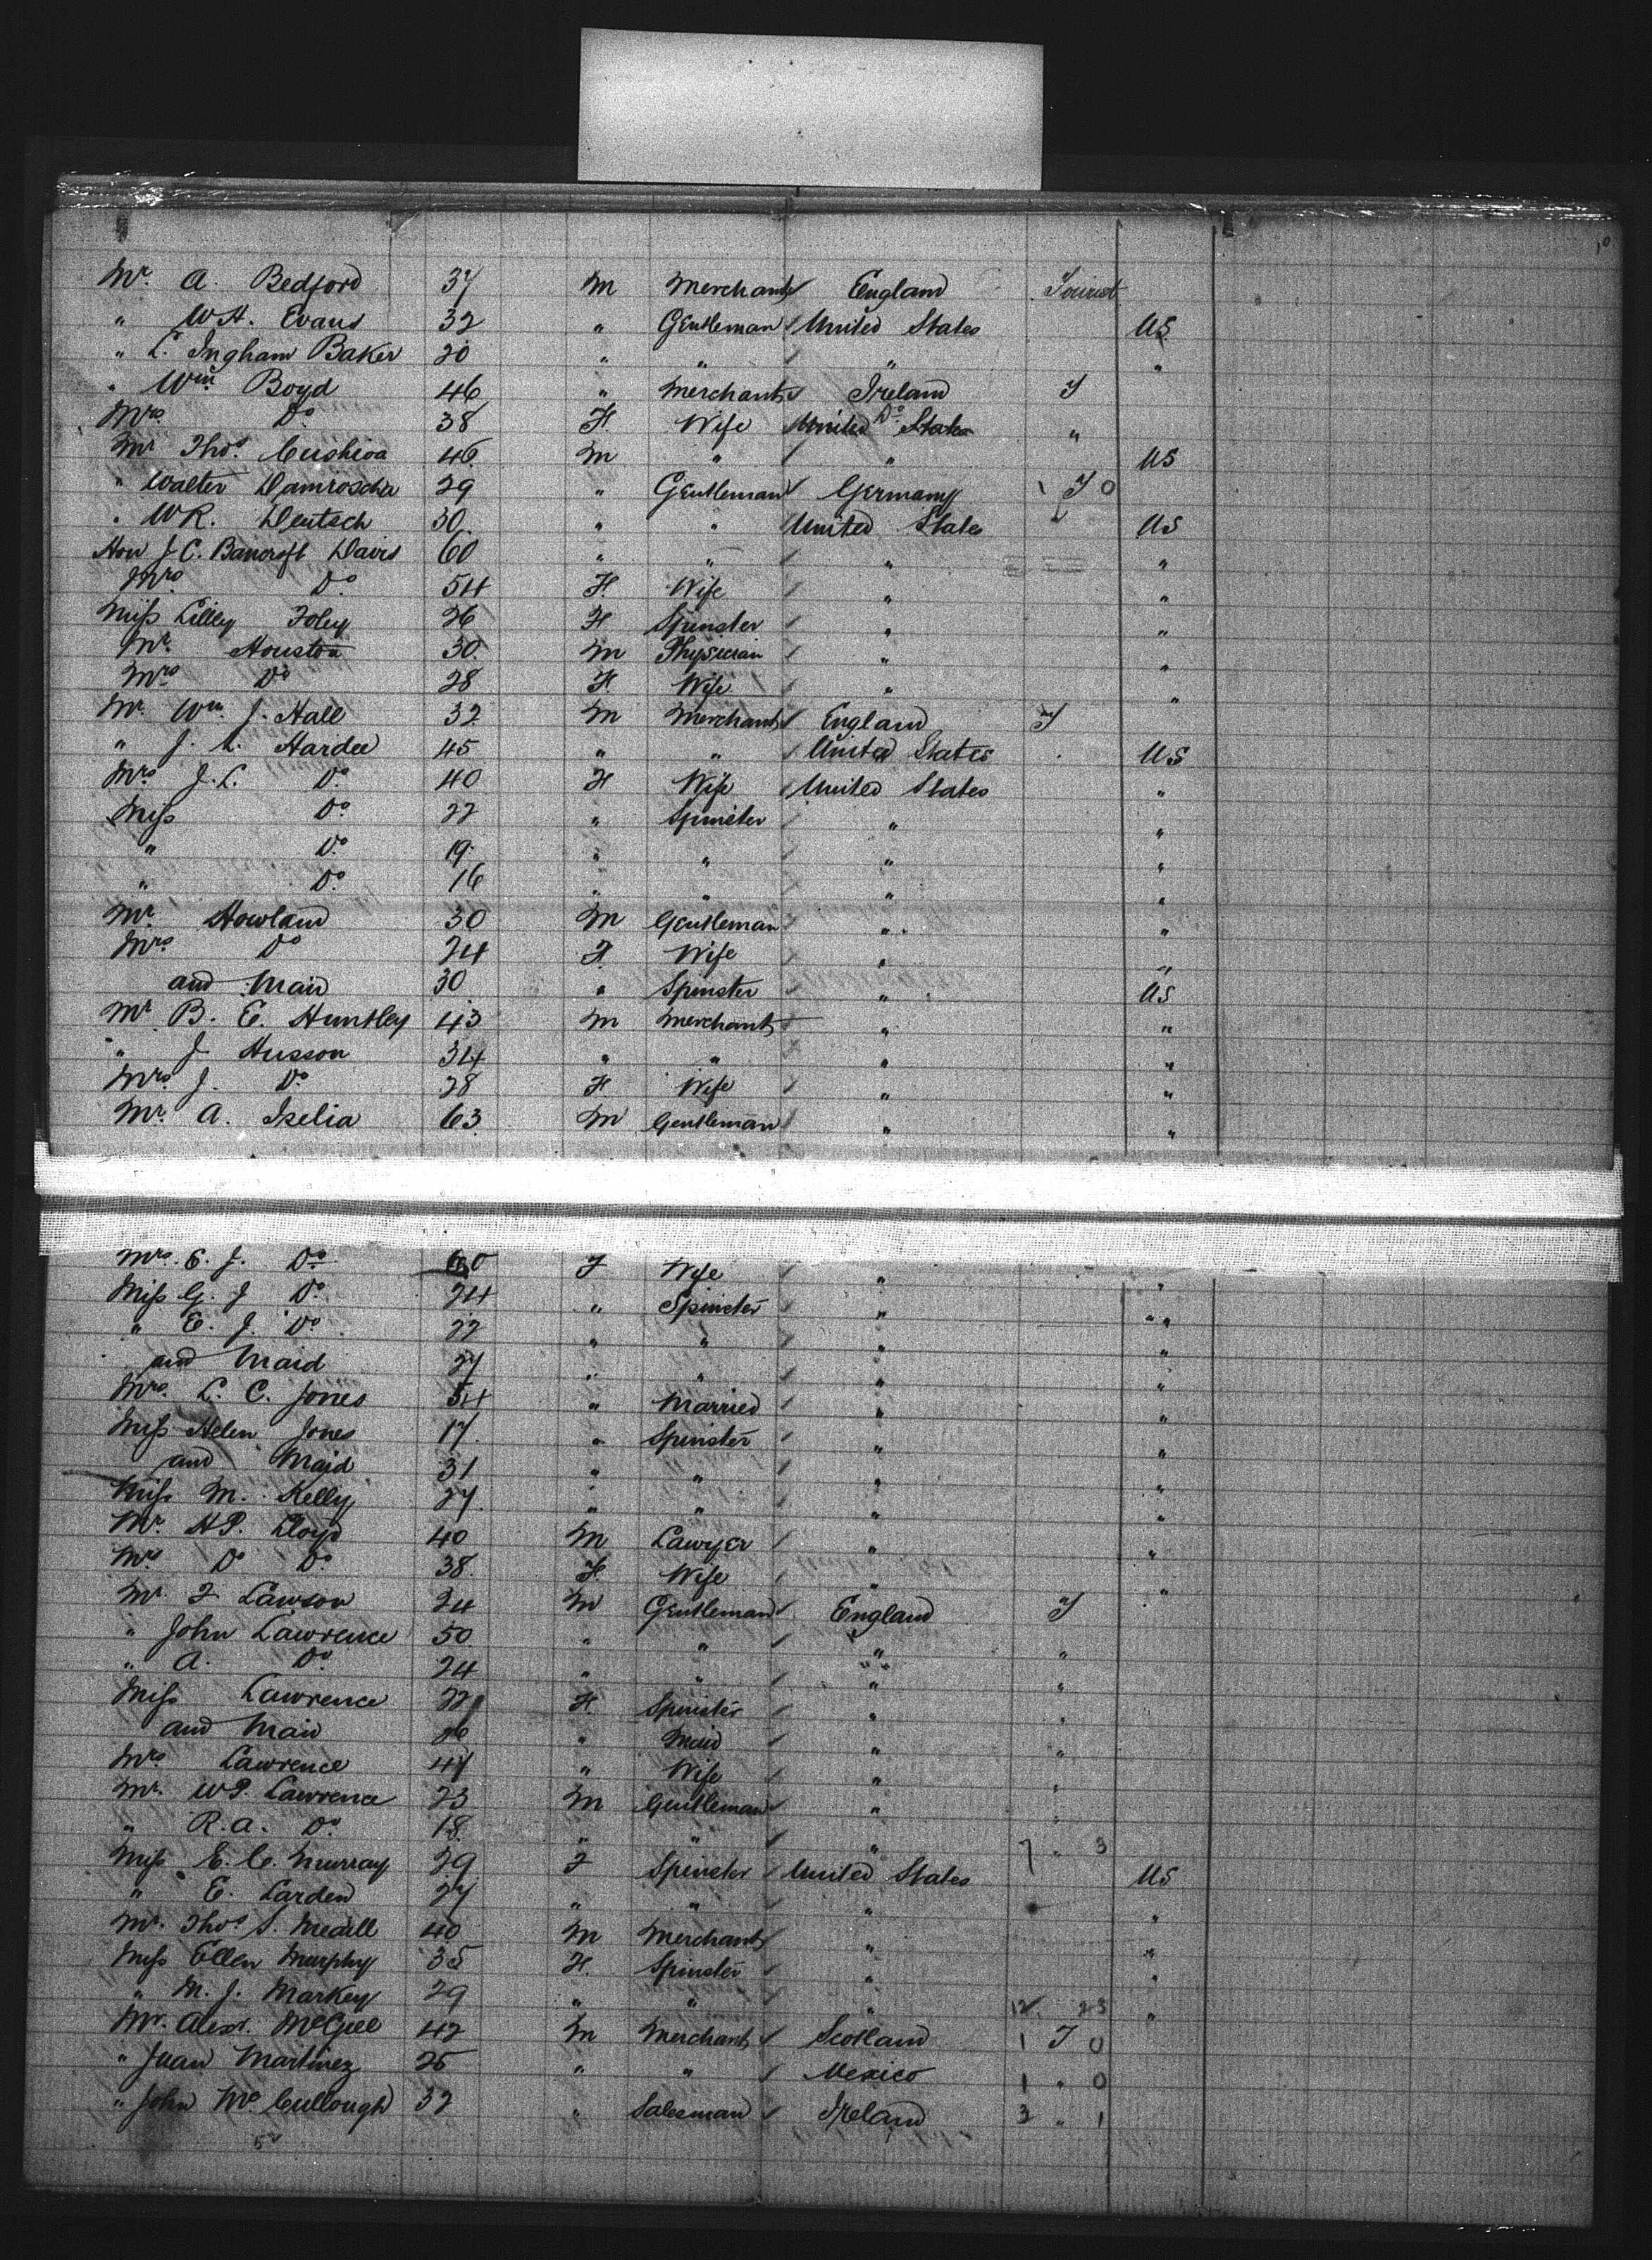 Mr. A. Bedford 37 M Merchant England Tourist
" W.H. Evans 32 " Gentleman United States US
" C. Ingham Baker 20 " " " "
" Wm Boyd 46 " Merchant Ireland T
Mrs. Do 38 F. Wife United Do States "
Mr Thos. Cushion 46 M " " US
" Walter Damroscha 29 " Gentleman Germany 1 T 0
" W R. Deutsch 30 " " United States US
Hon J. C. Bancroft Davis 60 " " " "
Mrs Do 54 F. Wife " "
Miss Lilley Foley 26 F Spinster " "
Mr. Houston 30 M Physician " "
Mrs Do 28 F. Wife " "
Mr. Wm. J. Hall 32 M Merchant England T
" J. L. Hardee 45 " " United States US
Mrs J. L. Do 40 F Wife United States "
Miss Do 22 " Spinster " "
" Do 19 " " " "
" Do 16 " " " "
Mr Howland 30 M Gentleman " "
Mrs Do 24 F. Wife " "
and Maid 30 " Spinster " US
Mr B. E. Huntley 43 M Merchant " "
" J Husson 34 " " " "
Mrs. J. Do 28 F Wife " "
Mr. A. Iselia 63 M Gentleman " "
Mrs. E. J. Do 60 F Wife " "
Miss G. J Do 24 " Spinster " "
" E. J. Do 22 " " " "
and Maid 27 " " " "
Mrs. L. C. Jones 54 " Married " "
Miss Helen Jones 17 " Spinster " "
and Maid 31 " " " "
Miss M. Kelly 27 " " " "
Mr. H P. Lloyd 40 M Lawyer " "
Mrs Do Do 38 F. Wife " "
Mr. F Lawson 24 M Gentleman England T
" John Lawrence 50 " " " "
" A. Do 24 " " " "
Miss Lawrence 22 F. Spinster " "
and Maid 26 " Maid " "
Mrs. Lawrence 47 " Wife " "
Mr. W P. Lawrence 23 M Gentleman " "
" R. A. Do 18 " " " 7 " 3
Miss E. C. Murray 29 F Spinster United States US
" E. Larden 27 " " " "
Mr. Thos. S. Medill 40 M Merchant " "
Miss Ellen Murphy 35 F. Spinster " "
" M. J. Markey 29 " " " 12 23 "
Mr. Alexr. McGill 42 M Merchant Scotland 1 T 0
" Juan Martinez 25 " " Mexico 1 " 0
" John McCullough 32 " Salesman Ireland 3 " 1
52